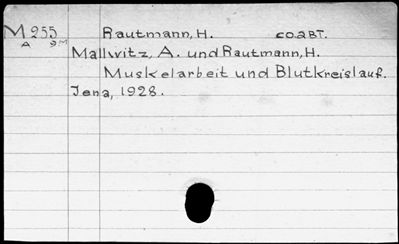 M 255 Rautmann, H. соавт.
A 9M
Mallwitz, A. und Rautmann, H.
Muskelarbeit und Blutkreislauf.
Jena, 1928.